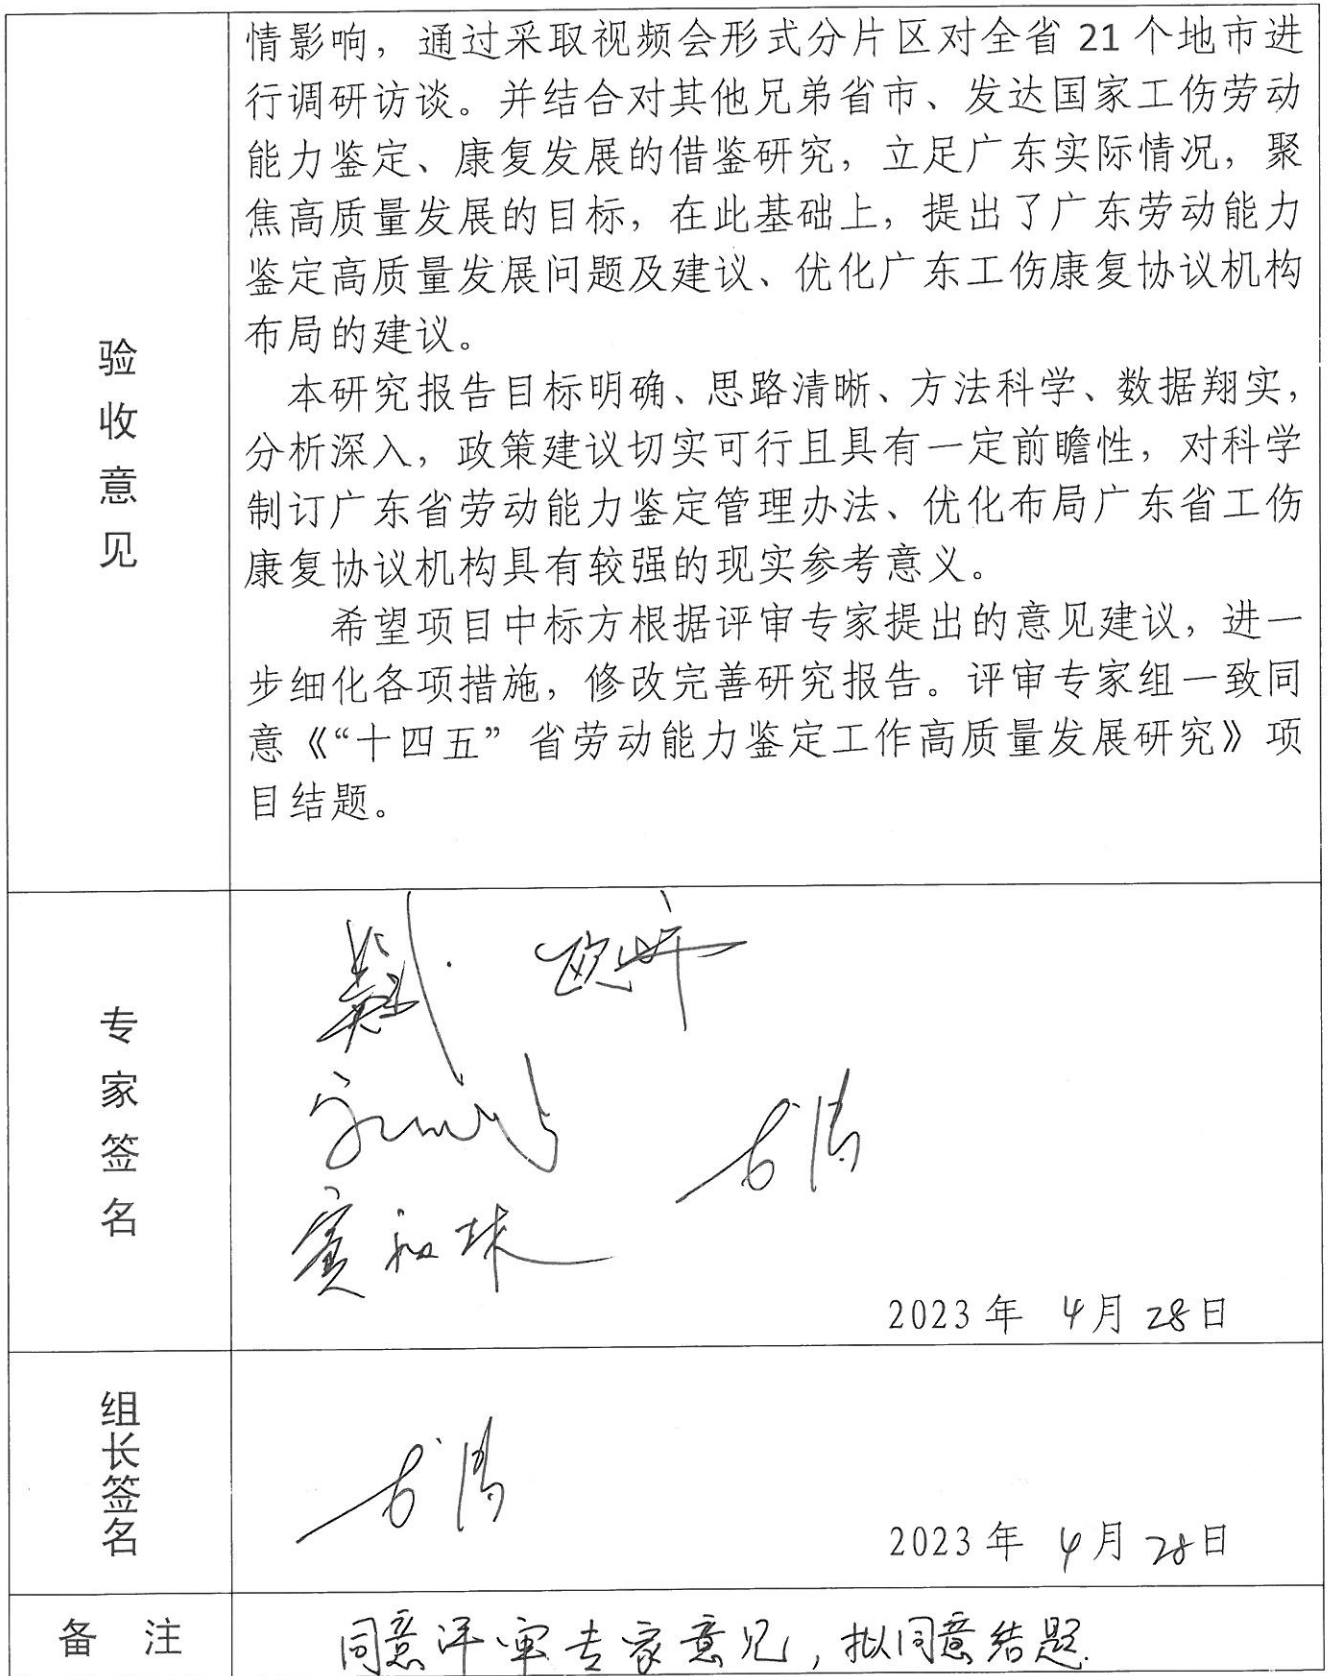 验收意见
情影响，通过采取视频会形式分片区对全省 21 个地市进
行调研访谈。并结合对其他兄弟省市、发达国家工伤劳动
能力鉴定、康复发展的借鉴研究，立足广东实际情况，聚
焦高质量发展的目标，在此基础上，提出了广东劳动能力
鉴定高质量发展问题及建议、优化广东工伤康复协议机构
布局的建议。
本研究报告目标明确、思路清晰、方法科学、数据翔实，
分析深入，政策建议切实可行且具有一定前瞻性，对科学
制订广东省劳动能力鉴定管理办法、优化布局广东省工伤
康复协议机构具有较强的现实参考意义。
希望项目中标方根据评审专家提出的意见建议，进一
步细化各项措施，修改完善研究报告。评审专家组一致同
意《“十四五”省劳动能力鉴定工作高质量发展研究》项
目结题。
专家签名
2023 年 4月 28日
组长签名
2023 年 4月 28日
备 注
同意评审专家意见，拟同意结题.